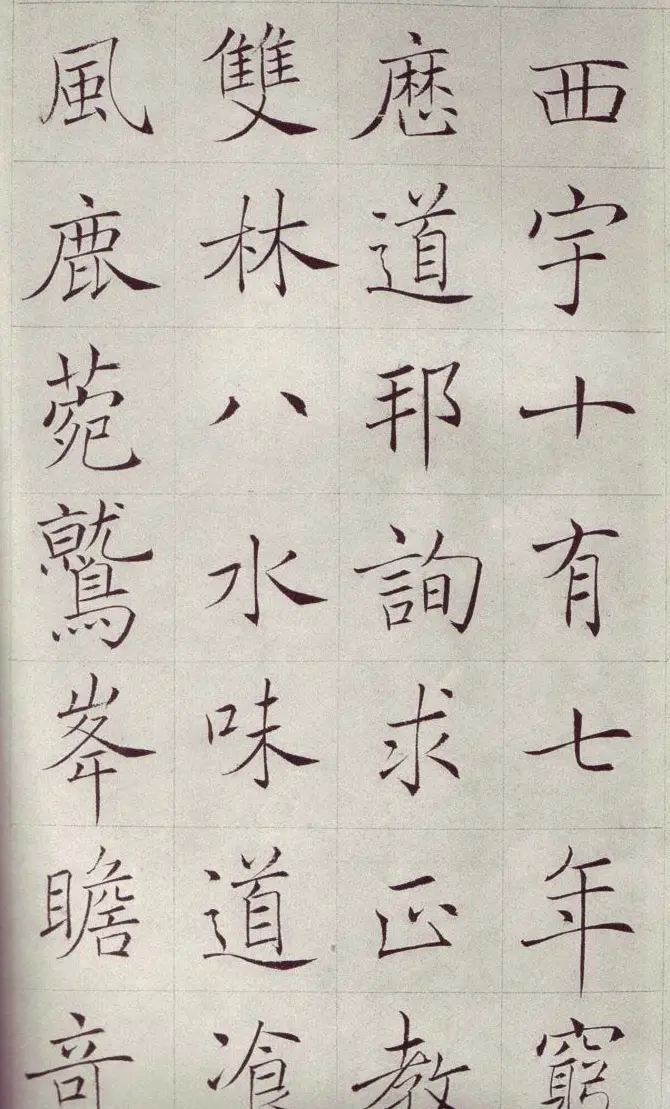 西宇十有七年窮
歷道邦詢求正教
雙林八水味道飡
風鹿菀鷲峯瞻竒